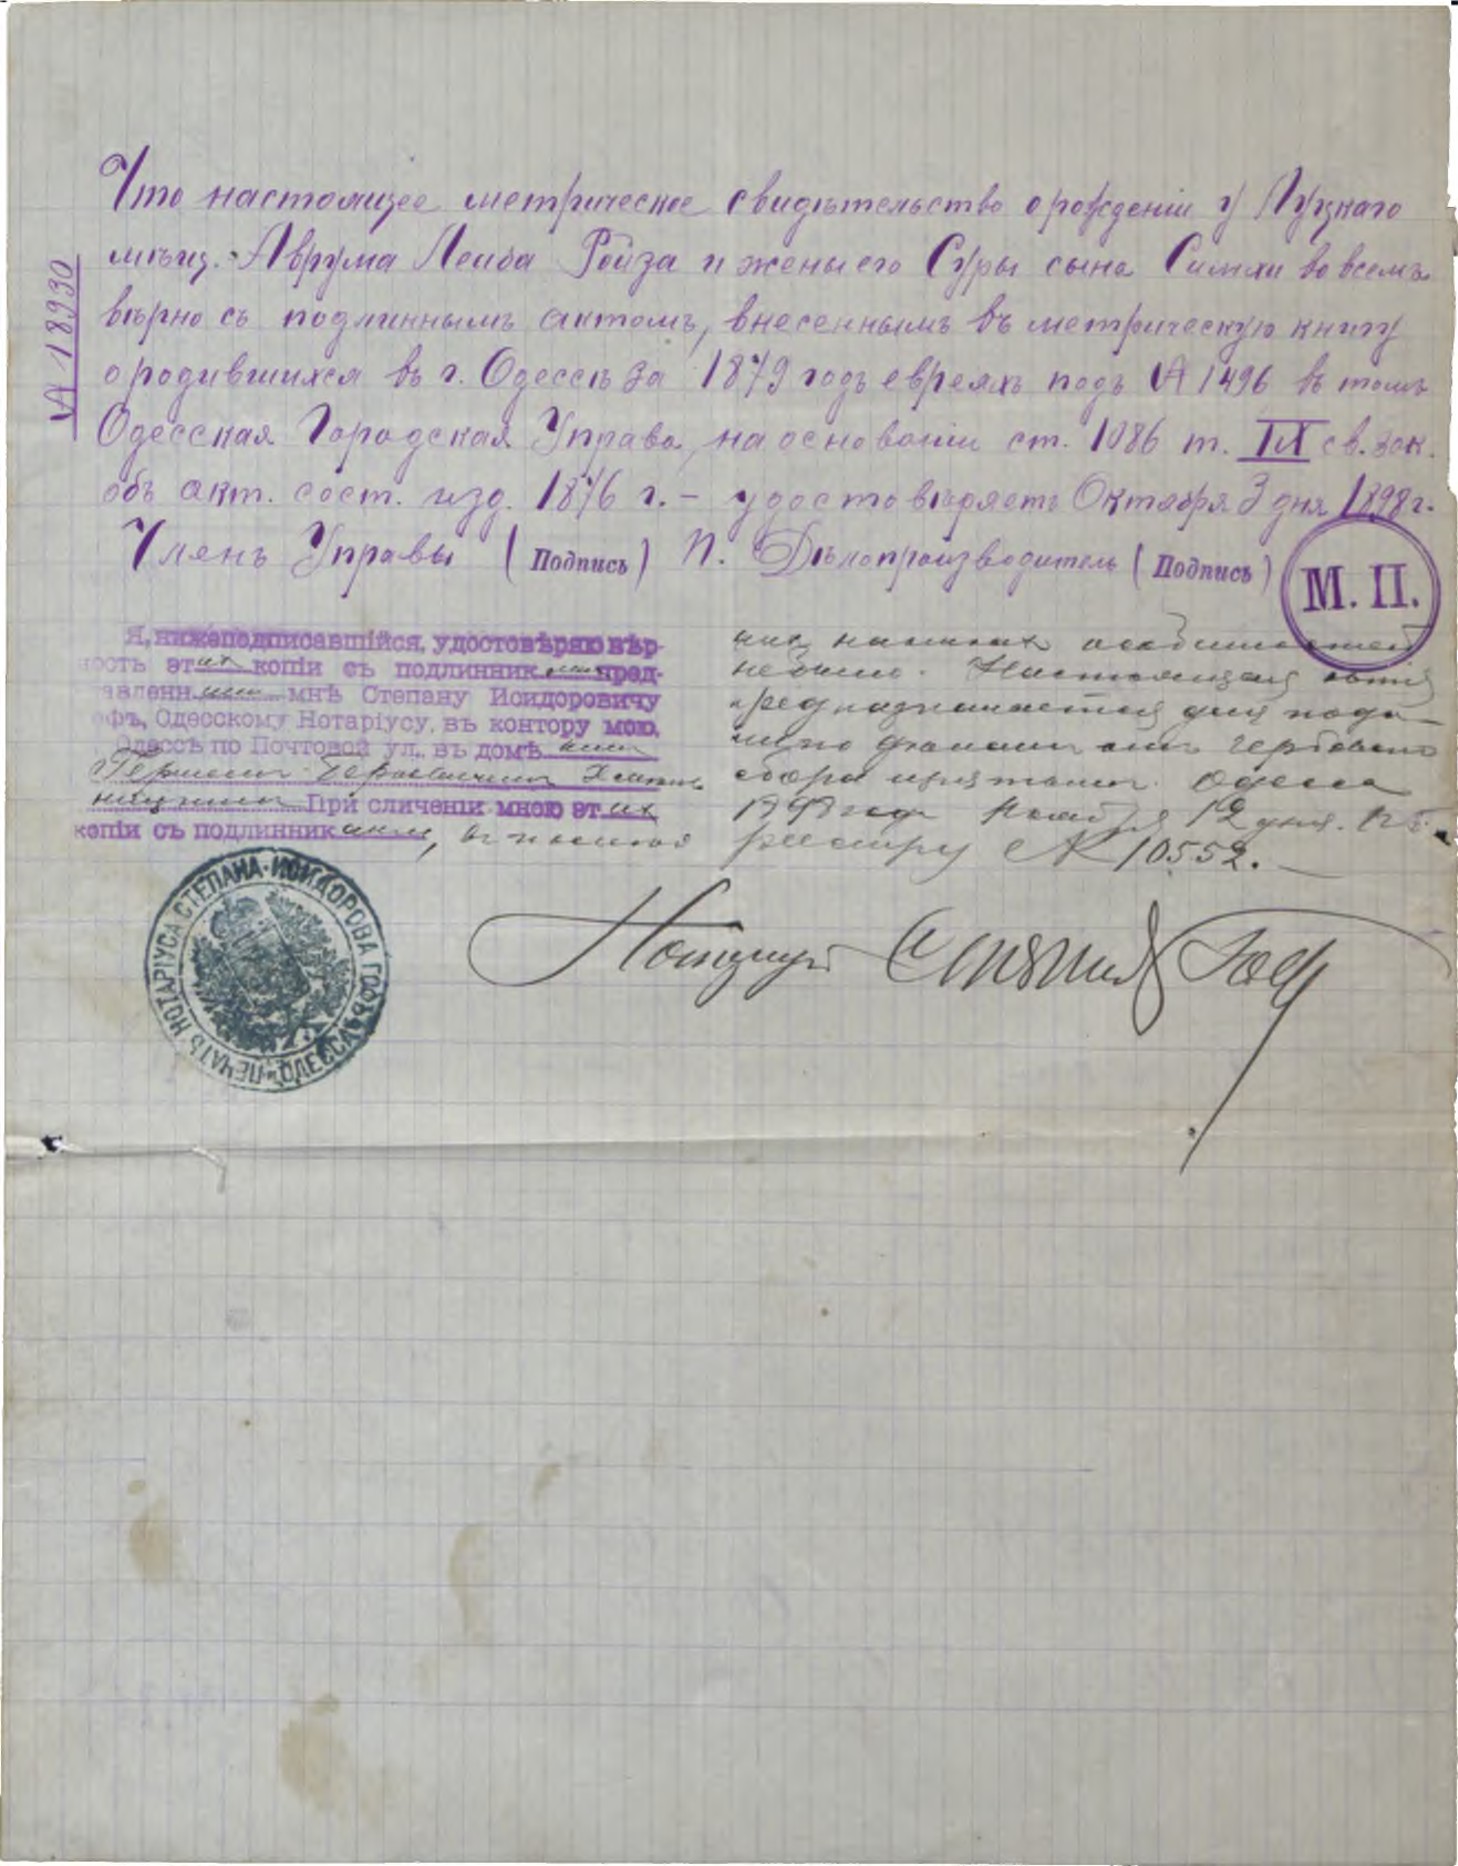 № 18930
Что настоящее метрическое свидѣтельство о рожденіи у Луцкаго
мѣщ. Аврума Лейба Ройза и жены его Суры сына Симхи во всемъ
вѣрно съ подлиннымъ актомъ, внесеннымъ въ метрическую книгу
о родившихся въ г. Одессѣ за 1879 годъ евреяхъ подъ № 1496 въ томъ
Одесская Городская Управа, на основаніи ст. 1086 т. IX св. зак.
объ акт. сост. изд. 1876 г. – удостовѣряетъ Октября 3 дня 1898 г.
Членъ Управы (Подпись) П. Дѣлопроизводитель (Подпись)
М. П.
Я, нижеподписавшійся, удостовѣряю вѣр-
ность этихъ копій съ подлинниками пред-
ставленными мнѣ Степану Исидоровичу
Гофъ, Одесскому Нотаріусу, въ контору мою,
Одессѣ по Почтовой ул., въ домѣ
При сличеніи мною этихъ
копій съ подлинниками, въ
особенностей
не было. Настоящая копія
предназначается для
гербового
сбора Одесса
1898 года Ноября 12 дня. По
реестру № 10552.
ПЕЧАТЬ НОТАРІУСА СТЕПАНА ИСИДОРОВА ГОФЪ ОДЕССА
Нотаріусъ Степанъ Гофъ